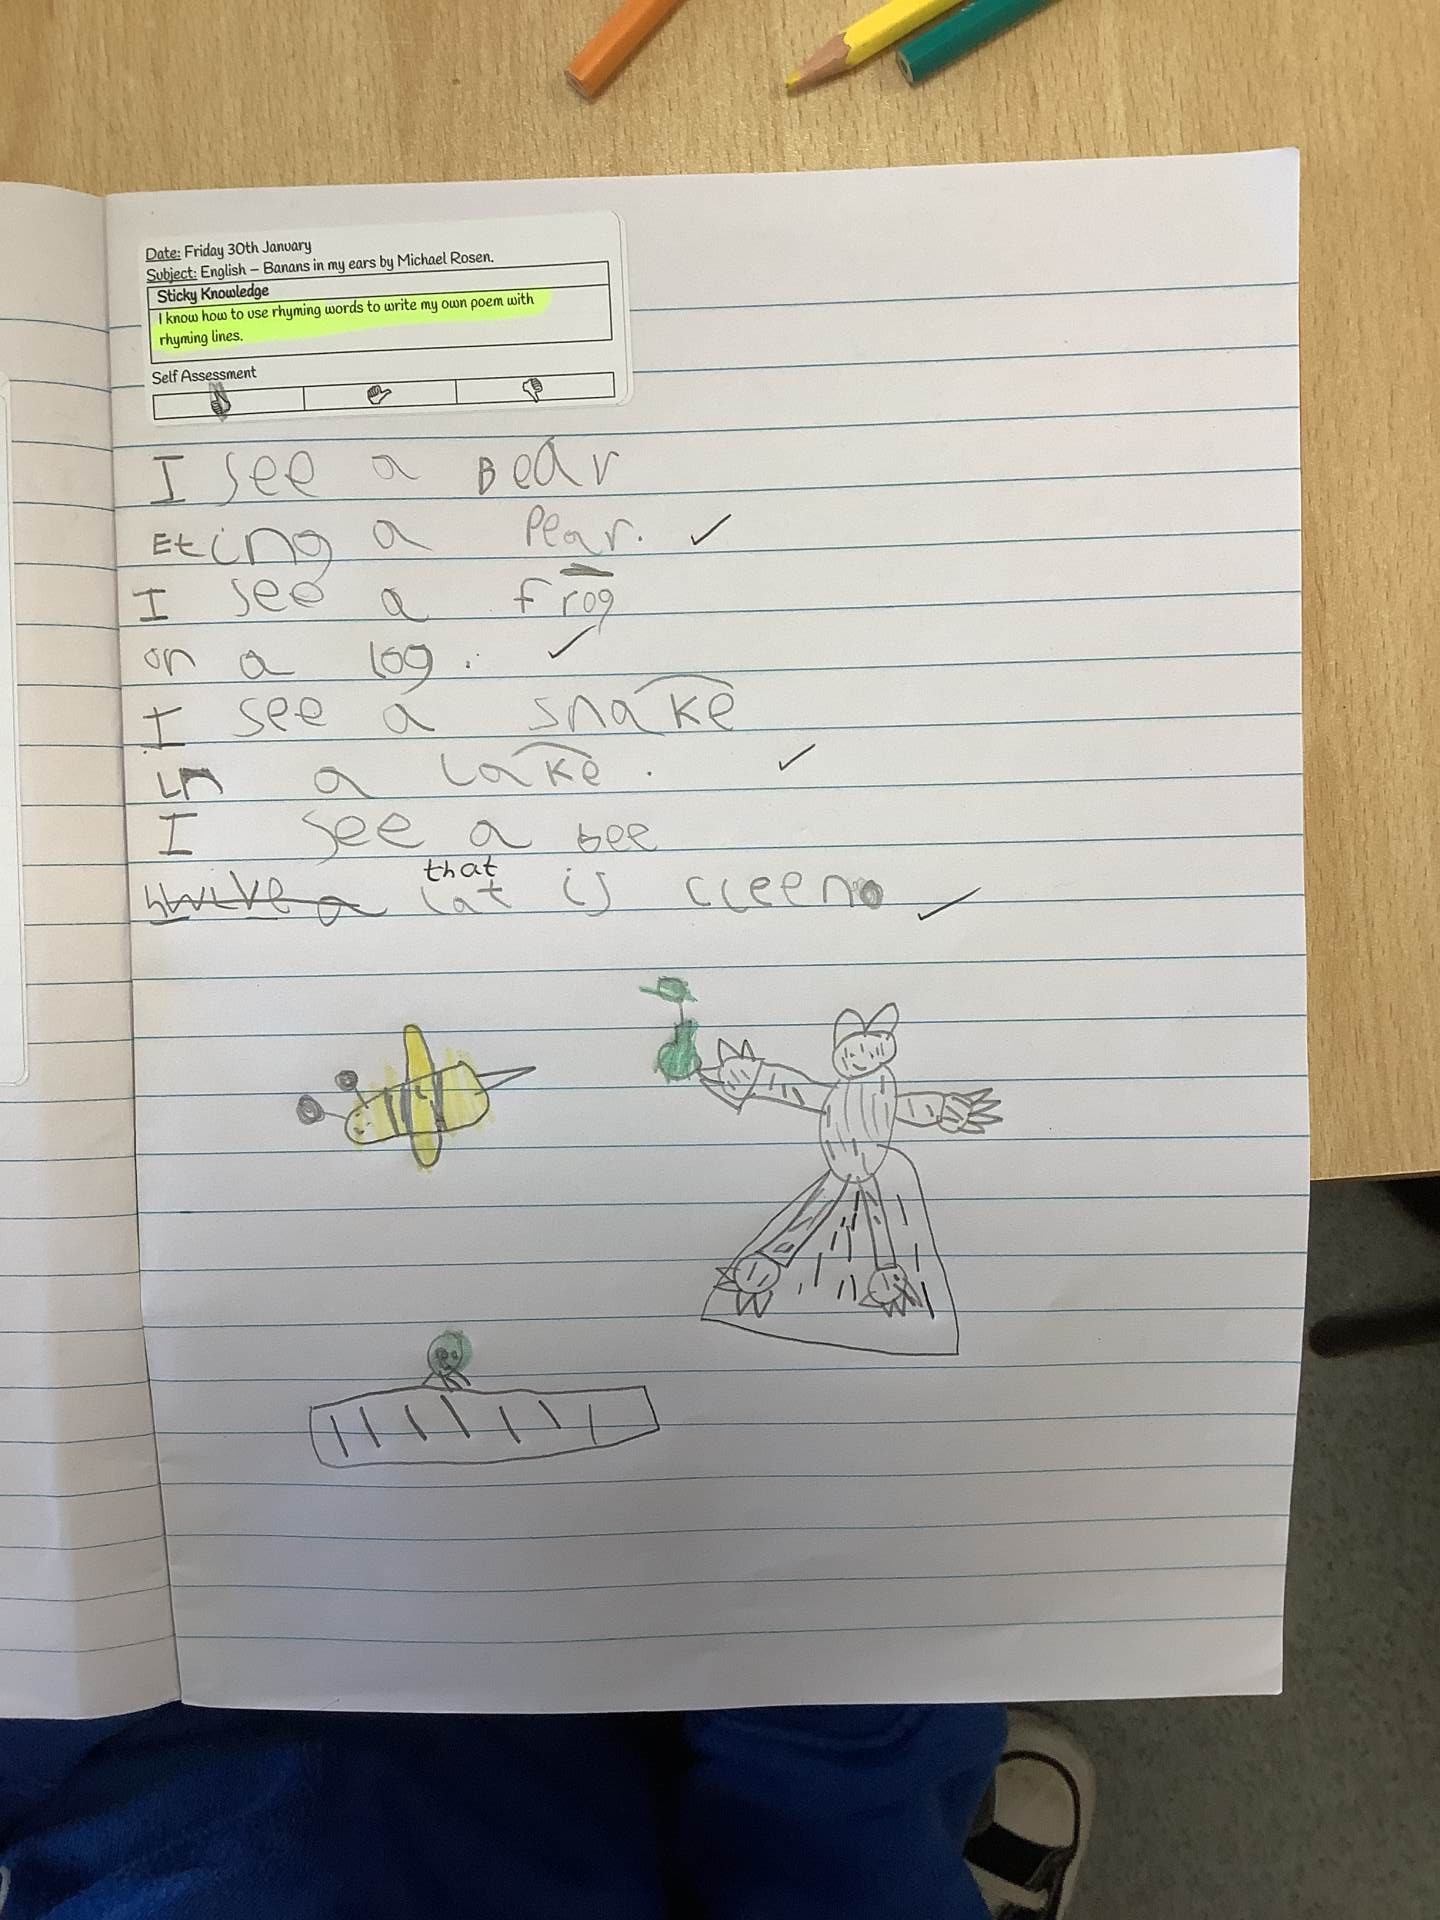 Date: Friday 30th January
Subject: English – Banans in my ears by Michael Rosen.
Sticky Knowledge
I know how to use rhyming words to write my own poem with
rhyming lines.
Self Assessment
I see a Bear
Eting a Pear.
I see a frog
on a log.
I see a snake
in a lake.
I see a bee
that
lat is cleen